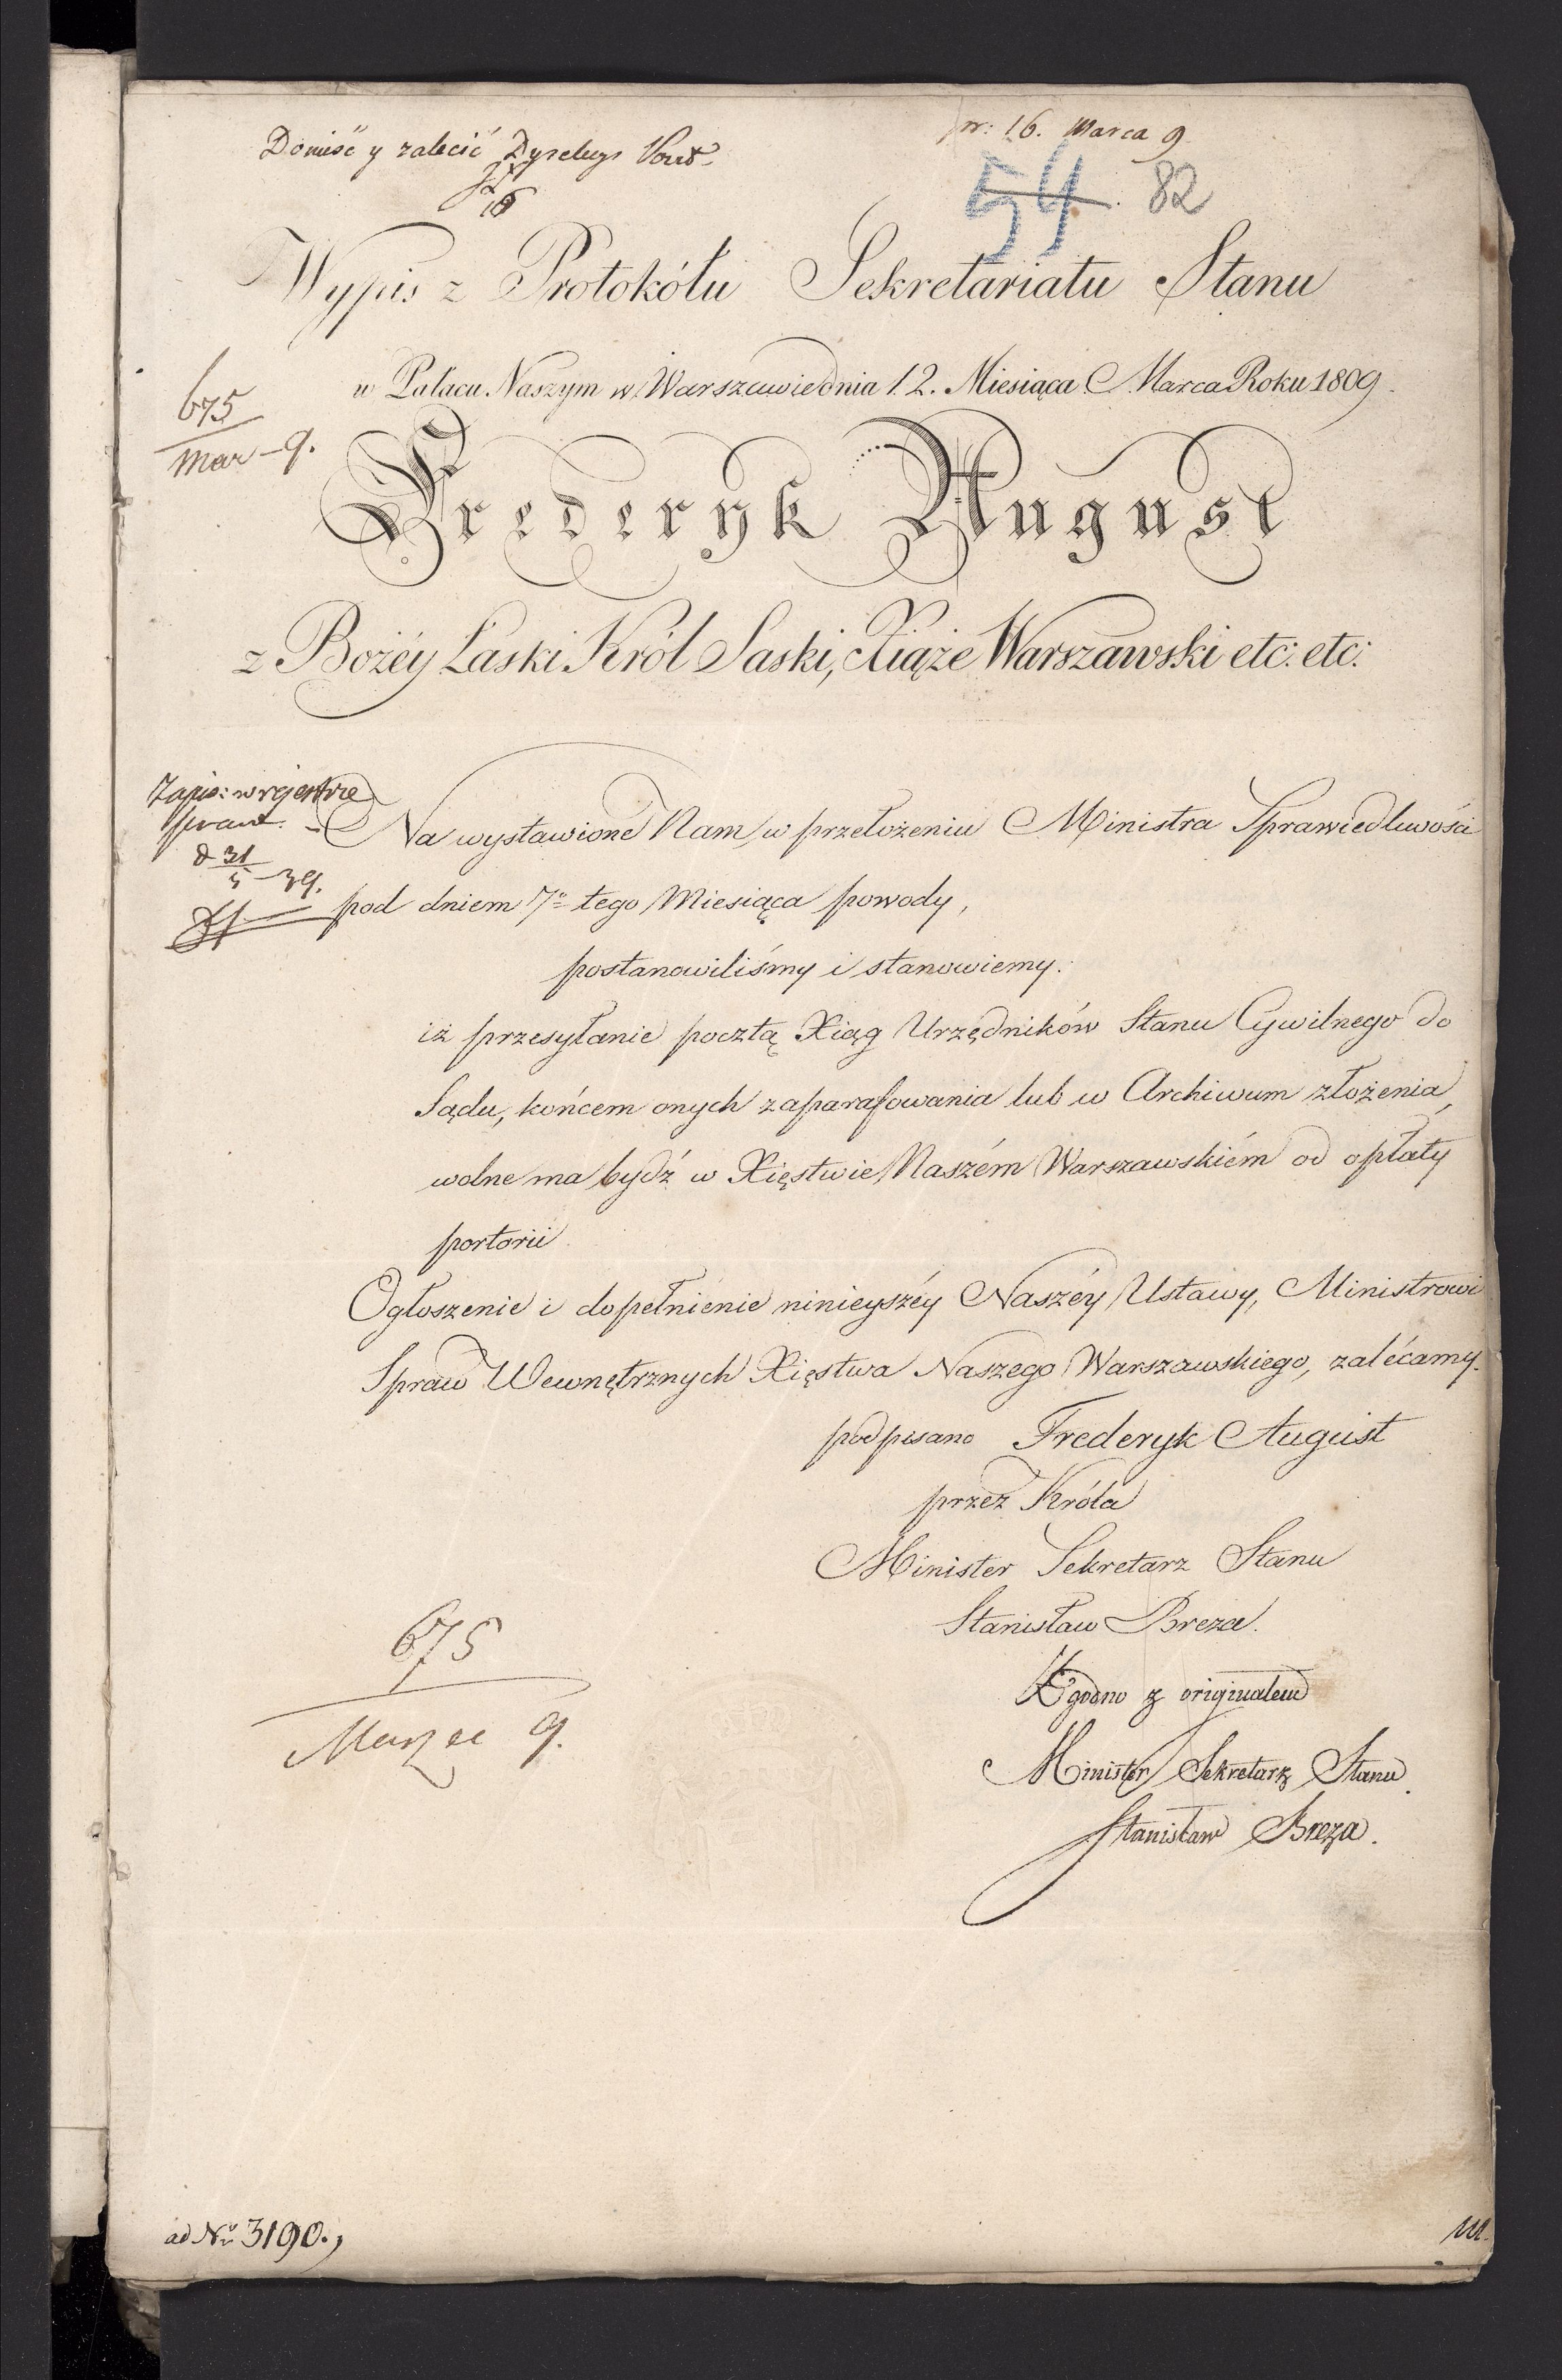 pr: 16. Marca 9.
Donieść y zalecić
54. 82
Wypis z Protokółu Sekretariatu Stanu
w Pałacu Naszym w Warszawie dnia 12. Miesiąca Marca Roku 1809.
675
Mar - 9.
Frederyk August
z Bożéy Łaski Król Saski, Xiąże Warszawski etc: etc:
Zapis: w rejestrze
prawt.
d 31/5 - 39.
Na wystawione Nam w przełożeniu Ministra Sprawiedliwości
pod dniem 7º tego Miesiąca powody,
postanowiliśmy i stanowiemy:
iż przesyłanie pocztą Xiąg Urzędników Stanu Cywilnego do
Sądu, końcem onych zaparafowania lub w Archiwum złożenia,
wolne ma bydź w Xięstwie Naszém Warszawskiém od opłaty
portorii.
Ogłoszenie i dopełnienie ninieyszéy Naszéy Ustawy, Ministrowi
Spraw Wewnętrznych Xięstwa Naszego Warszawskiego, zalécamy.
podpisano Frederyk August
przez Króla
Minister Sekretarz Stanu
Stanisław Breza.
Zgodno z originałem
Minister Sekretarz Stanu.
Stanisław Breza.
675
Marzec 9.
ad Nr 3190.,